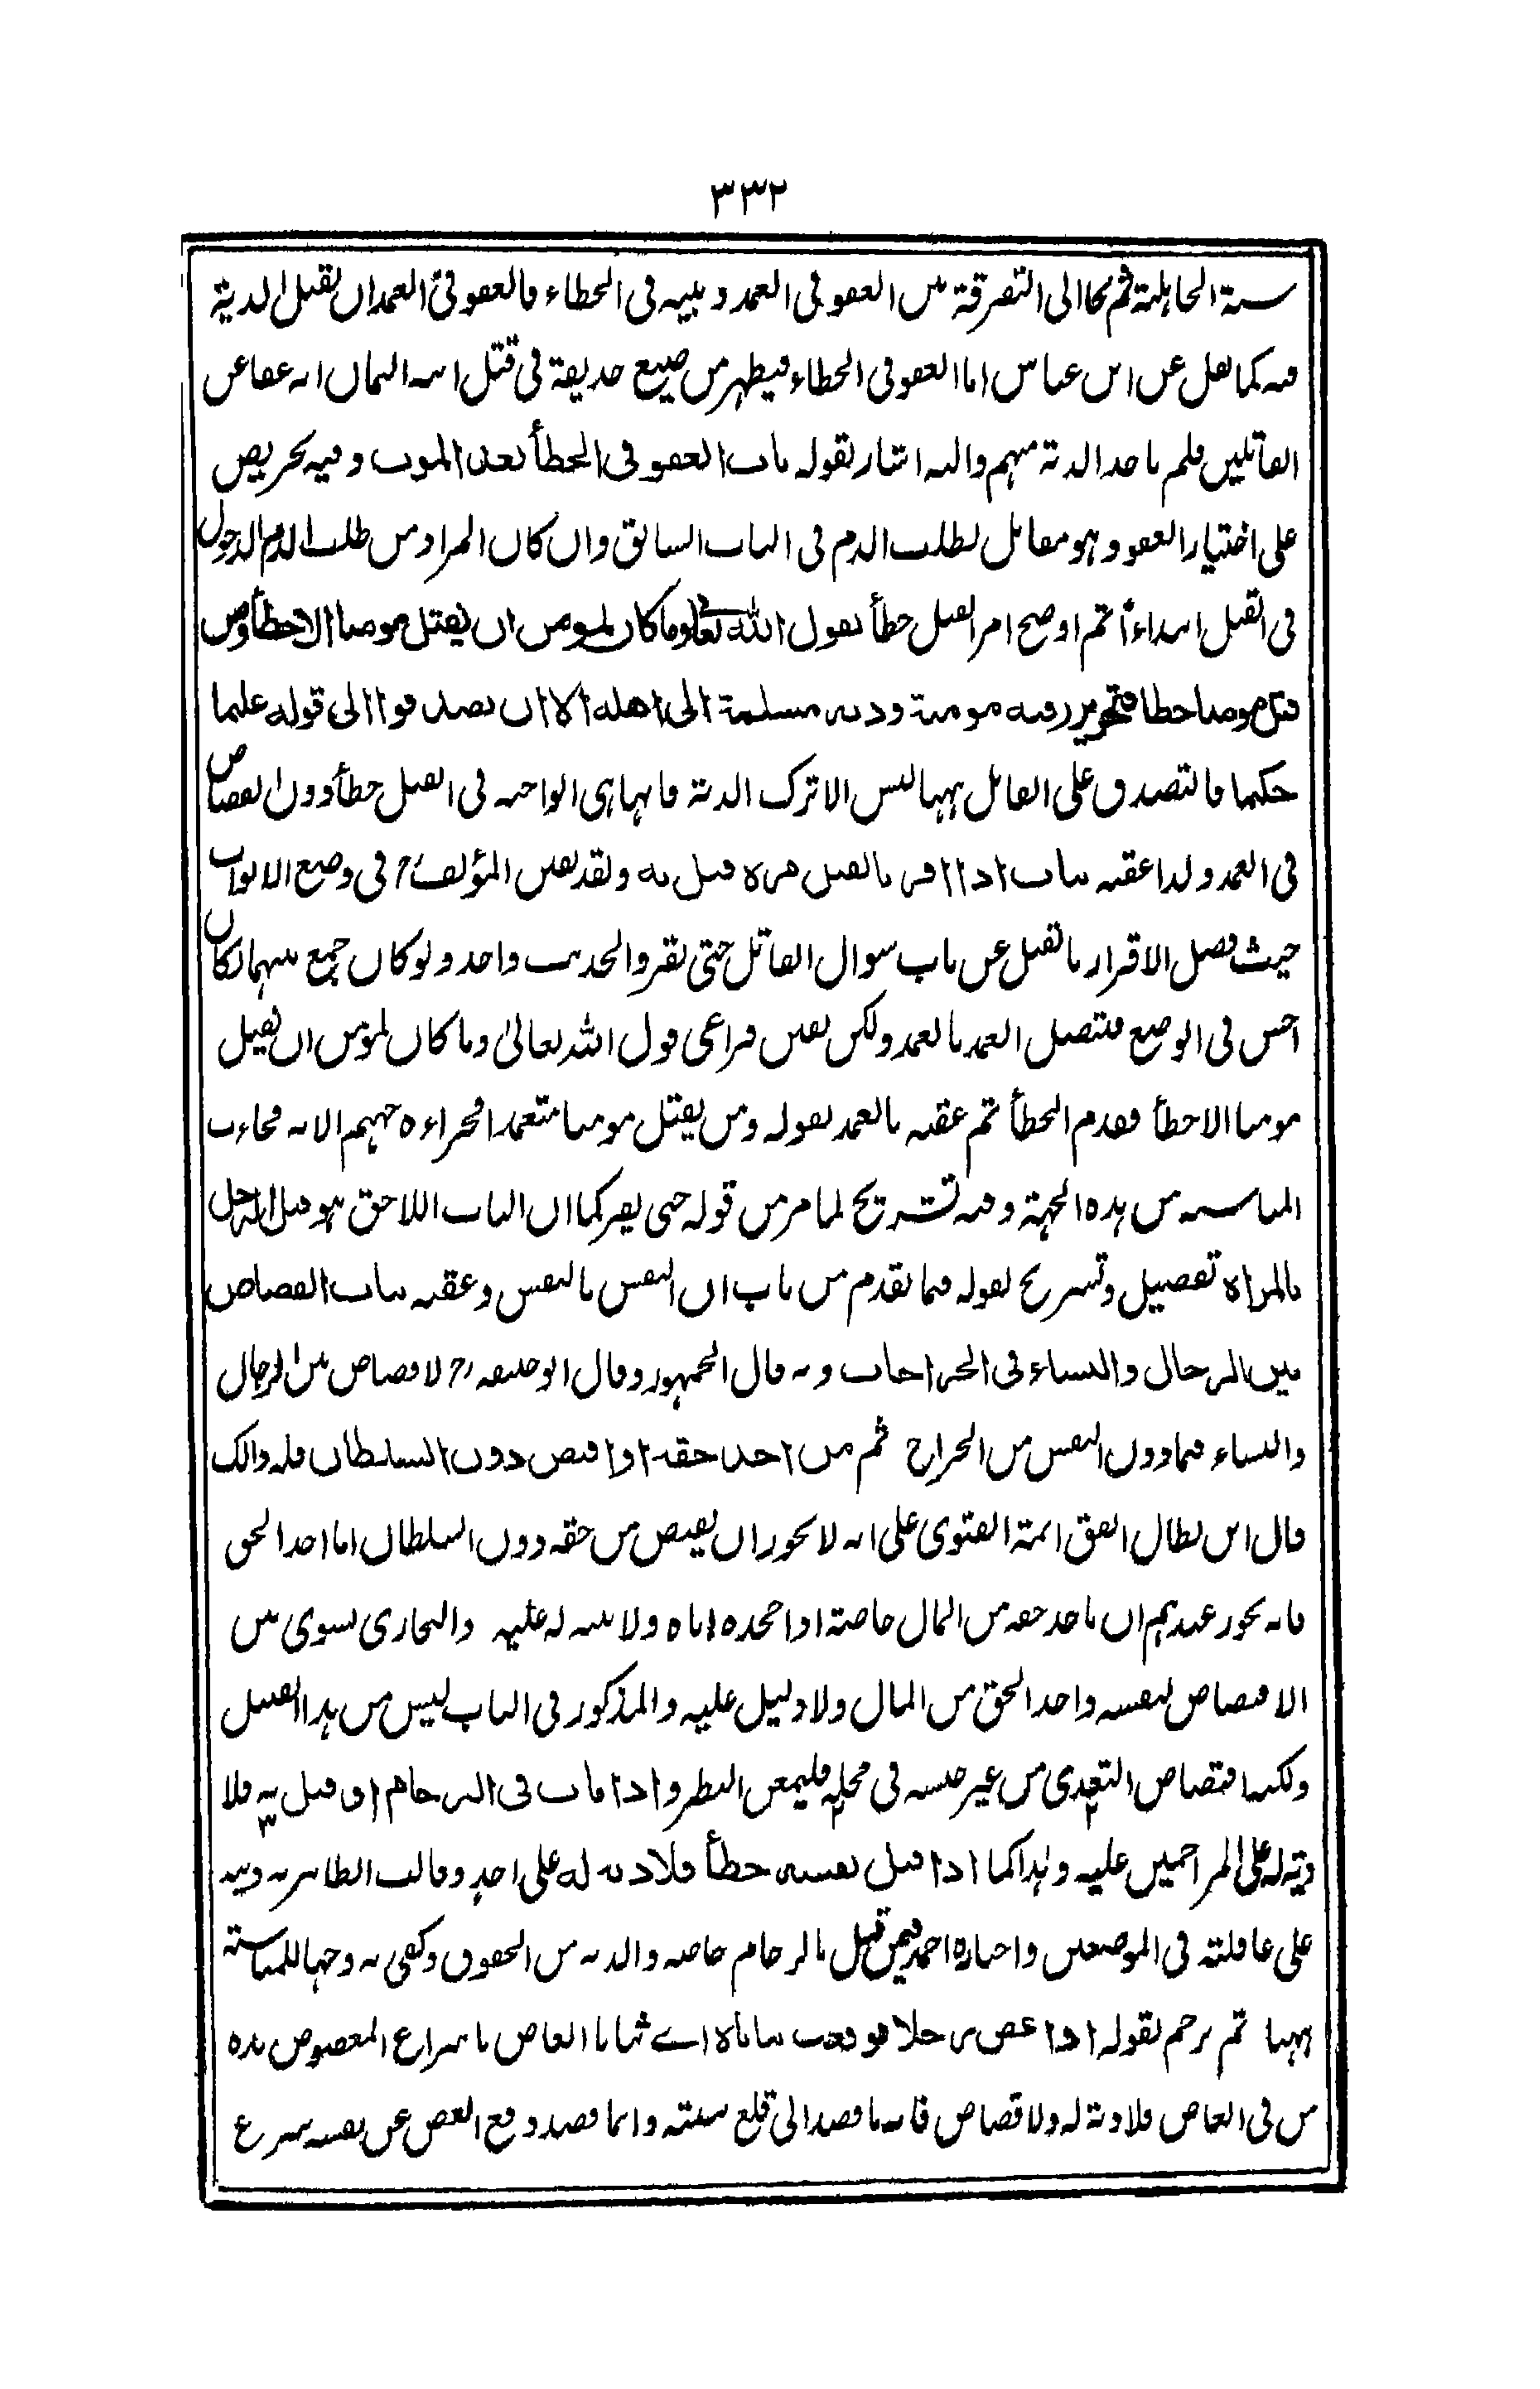 ٣٣٢
سنة الجاهلية ثم نحا الى التفرقة بين العفو فى العمد وبينه فى الخطاء فالعفو فى العمد ان يقبل الدية
فيه كما نقل عن ابن عباس اما العفو فى الخطاء فيظهر من صنيع حذيفة فى قتل ابيه اليمان انه عفا عن
القاتلين فلم ياخذ الدية منهم واليه اشار بقوله باب العفو فى الخطأ بعد الموت وفيه تحريص
على اختيار العفو وهو مقابل لطلب الدم فى الباب السابق وان كان المراد من طلب الدم الدخول
فى القتل ابتداءً ثم اوضح امر القتل خطأ بقول الله تعالى وما كان لمومن ان يقتل مومنا الا خطأ ومن
قتل مومنا خطا فتحرير رقبه مومنة ودية مسلمة الى اهله الا ان يصدقوا الى قوله عليما
حكيما فالتصدق على القاتل ههنا ليس الا ترك الدية فانها هى الواجبه فى القتل خطأ دون القصاص
فى العمد ولذا عقبه بباب اذا اقر بالقتل مرة قتل به ولقد تفنن المؤلف رح فى وضع الابواب
حيث فصل الاقرار بالقتل عن باب سوال القاتل حتى يقر والحديث واحد ولو كان جمع بينهما لكان
احسن فى الوضع فيتصل العمد بالعمد ولكن تفنن فراعى قول الله تعالىٰ وما كان لمومن ان يقتل
مومنا الا خطأ فقدم الخطأ ثم عقبه بالعمد بقوله ومن يقتل مومنا متعمدا فجزاءه جهنم الايه فجاءت
المناسبه من هذه الجهة وفيه تشريح لما مر من قوله حتى يقر كما ان الباب اللاحق هو قتل الرجل
بالمراة تفصيل وتشريح لقوله فيما تقدم من باب ان النفس بالنفس وعقبه بباب القصاص
بين الرجال والنساء فى الجراحات وبه قال الجمهور وقال ابو حنيفه رح لا قصاص بين الرجال
والنساء فيما دون النفس من الجراح ثم من اخذ حقه او اقتص دون السلطان فله ذالك
قال ابن بطال اتفق ائمة الفتوى على انه لا يجوز ان يقتص من حقه دون السلطان اما اخذ الحق
فانه يجوز عندهم ان ياخذ حقه من المال خاصة اذا جحده اياه ولا بينه له عليه والبخارى سوى بين
الاقتصاص لنفسه واخذ الحق من المال ولا دليل عليه والمذكور فى الباب ليس من هذا القبيل
ولكنه اقتصاص التعدى من غير جنسه فى محله فليمعن النظر واذا مات فى الزحام او قتل به فلا
دية له على المزاحمين عليه وهذا كما اذا قتل نفسه خطأ فلا دية له على احدٍ وقالت الظاهريه ديته
على عاقلته فى الموضعين واختاره احمد فيمن قتل بالزحام خاصه والديه من الحقوق وكفى به وجها للمناسبة
ههنا ثم ترجم بقوله اذا عض رجلا فوقعت ثناياه اے ثنايا العاض بانتزاع المعضوض يده
من فى العاض فلا دية له ولا قصاص فانه ما قصد الى قلع سنته وانما قصد دفع العض عن نفسه بنزع